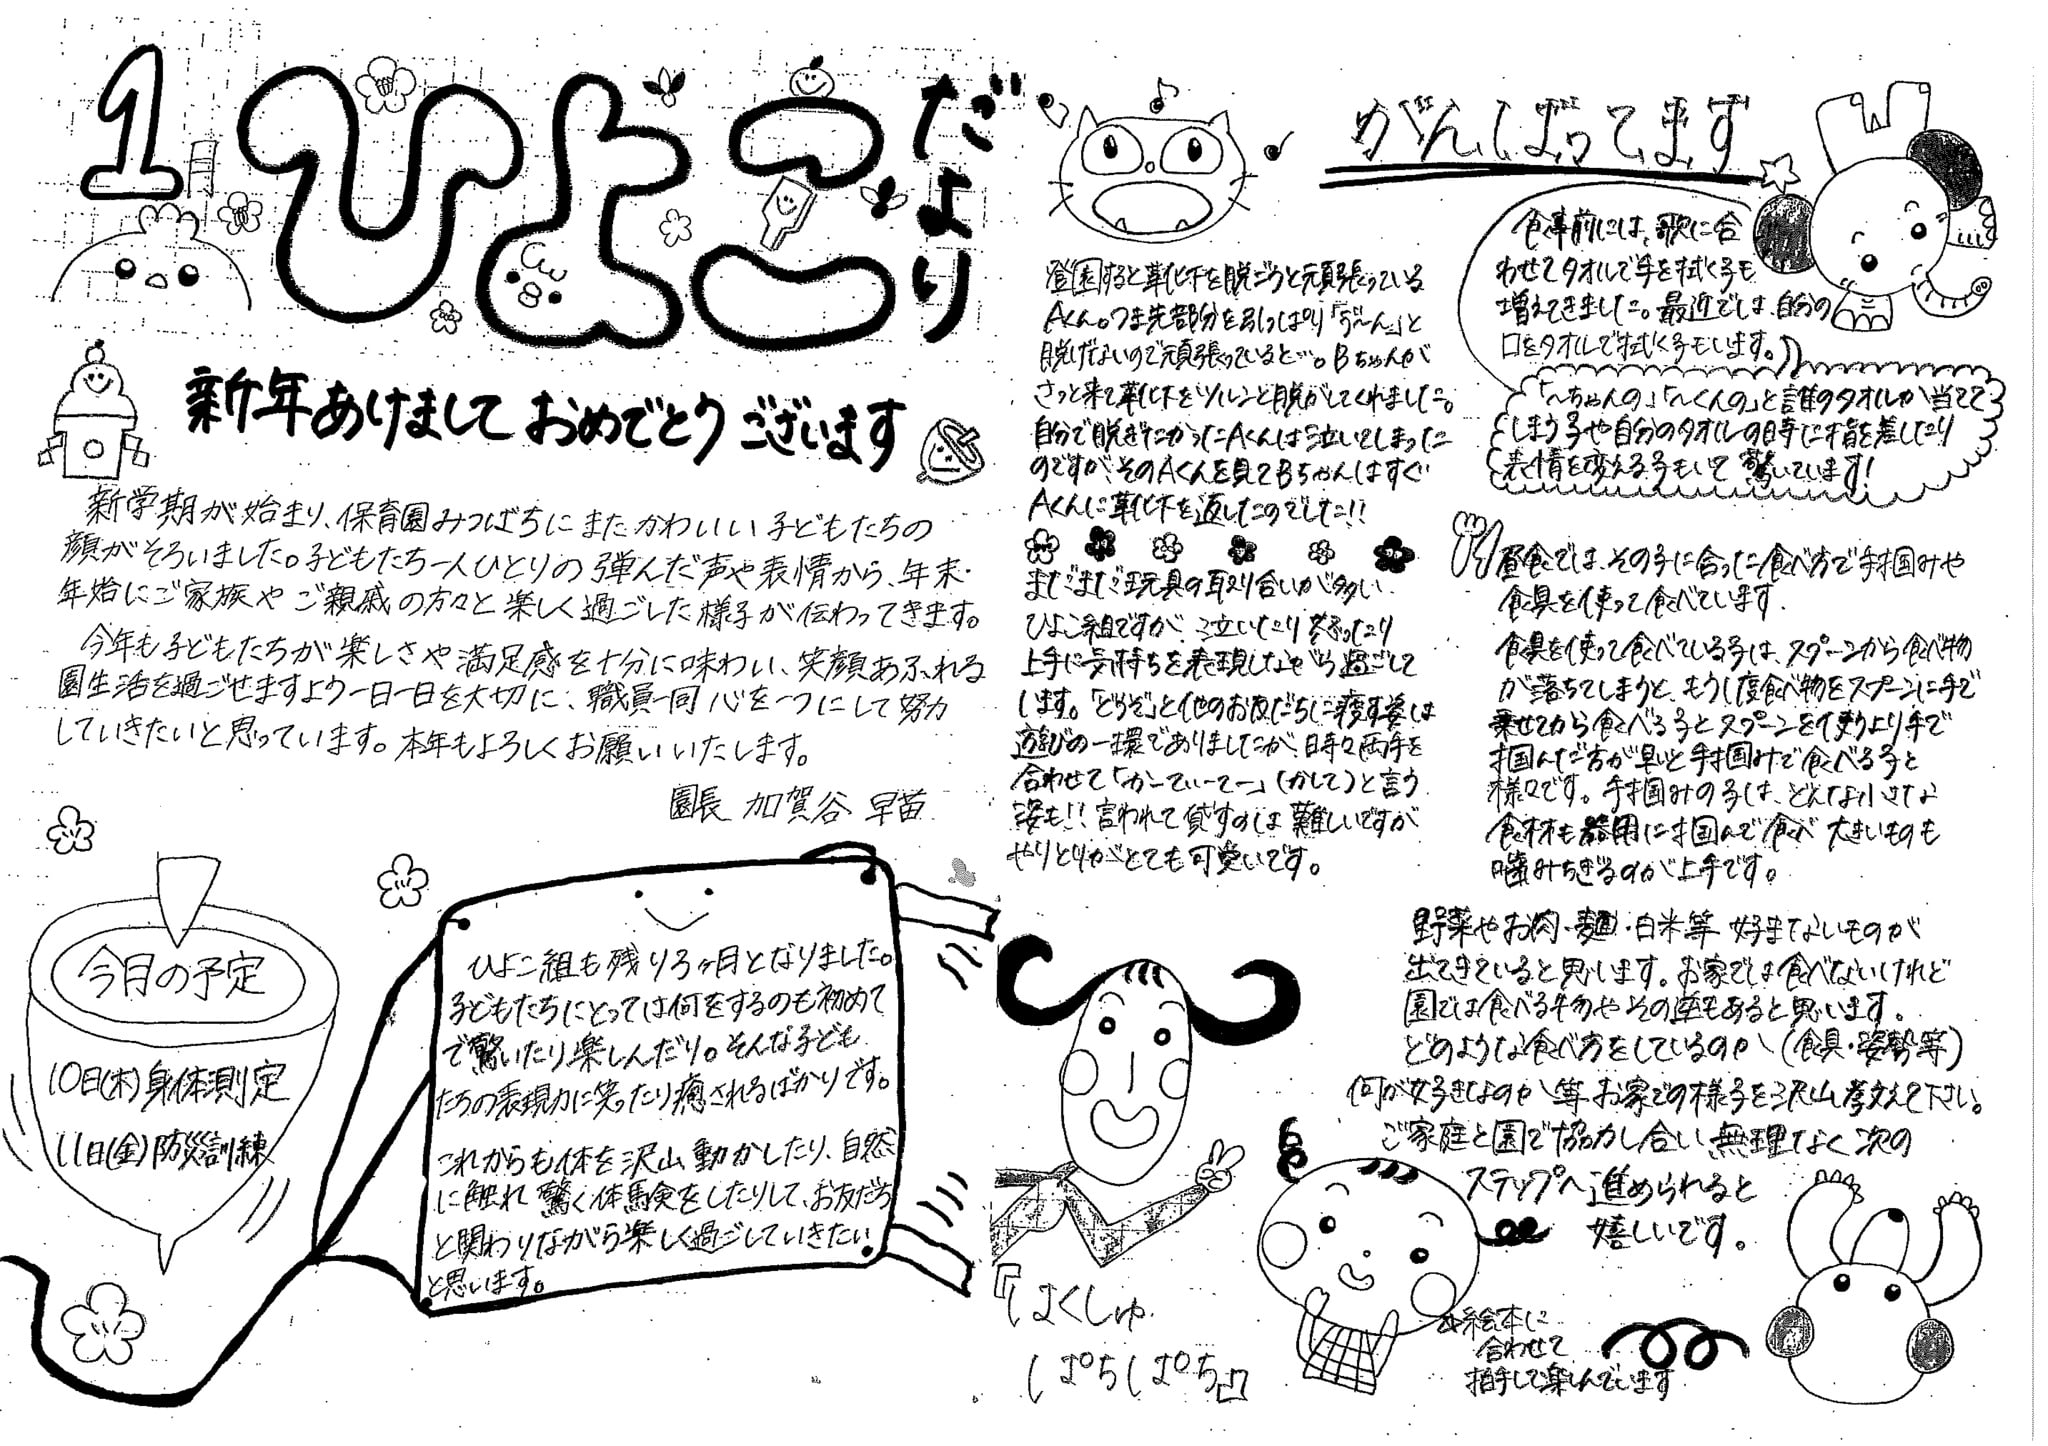 1
ひよこ
だより
新年あけましておめでとうございます
新学期が始まり、保育園みつばちにまたかわいい子どもたちの
顔がそろいました。子どもたち一人ひとりの弾んだ声や表情から、年末・
年始にご家族やご親戚の方々と楽しく過ごした様子が伝わってきます。
今年も子どもたちが楽しさや満足感を十分に味わい、笑顔あふれる
園生活を過ごせますよう一日一日を大切に、職員一同心を一つにして努力
していきたいと思っています。本年もよろしくお願いいたします。
園長 加賀谷 早苗
今月の予定
10日(木)身体測定
11日(金)防災訓練
ひよこ組も残り3ヶ月となりました。
子どもたちにとっては何をするのも初めて
で驚いたり楽しんだり。そんな子ども
たちの表現力に笑ったり癒されるばかりです。
これからも体を沢山動かしたり、自然
に触れ驚く体験をしたりして、お友だち
と関わりながら楽しく過ごしていきたい
と思います。
がんばってます
登園すると靴下を脱ごうと頑張っている
Aくん。つま先部分を引っぱり「う〜ん」と
脱げないので頑張っていると…。Bちゃんが
さっと来て靴下をツルンと脱がしてくれました。
自分で脱ぎたかったAくんは泣いてしまった
のですが、そのAくんを見てBちゃんはすぐ
Aくんに靴下を返したのでした!!
まだまだ玩具の取り合いが多い
ひよこ組ですが、泣いたり怒ったり
上手に気持ちを表現しながら過ごして
します。「どうぞ」と他のお友だちに渡す姿は
遊びの一環でありましたが、時々両手を
合わせて「かーてぃーてー」(かして)と言う
姿も!! 言われて貸すのは難しいですが
やりとりがとても可愛いです。
食事前には、歌に合
わせてタオルで手を拭く子も
増えてきました。最近では、自分の
口をタオルで拭く子もいます。
「〜ちゃんの」「〜くんの」と誰のタオルか当てて
しまう子や自分のタオルの時に指を差したり
表情を変える子もいて驚いています!
昼食では、その子に合った食べ方で手掴みや
食具を使って食べています。
食具を使って食べている子は、スプーンから食べ物
が落ちてしまうと、もう1度食べ物をスプーンに手で
乗せてから食べる子とスプーンを使うより手で
掴んだ方が早いと手掴みで食べる子と
様々です。手掴みの子は、どんな小さな
食材も器用に掴んで食べ 大きいものも
噛みちぎるのが上手です。
野菜やお肉・麺・白米等 好まないものが
出てきていると思います。お家では食べないけれど
園では食べる物やその逆もあると思います。
どのような食べ方をしているのか(食具・姿勢等)
何が好きなのか等 お家での様子を沢山教えて下さい。
ご家庭と園で協力し合い無理なく次の
ステップへ進められると
嬉しいです。
『はくしゅ
ぱちぱち』
☆絵本に
合わせて
拍手して楽しんでいます